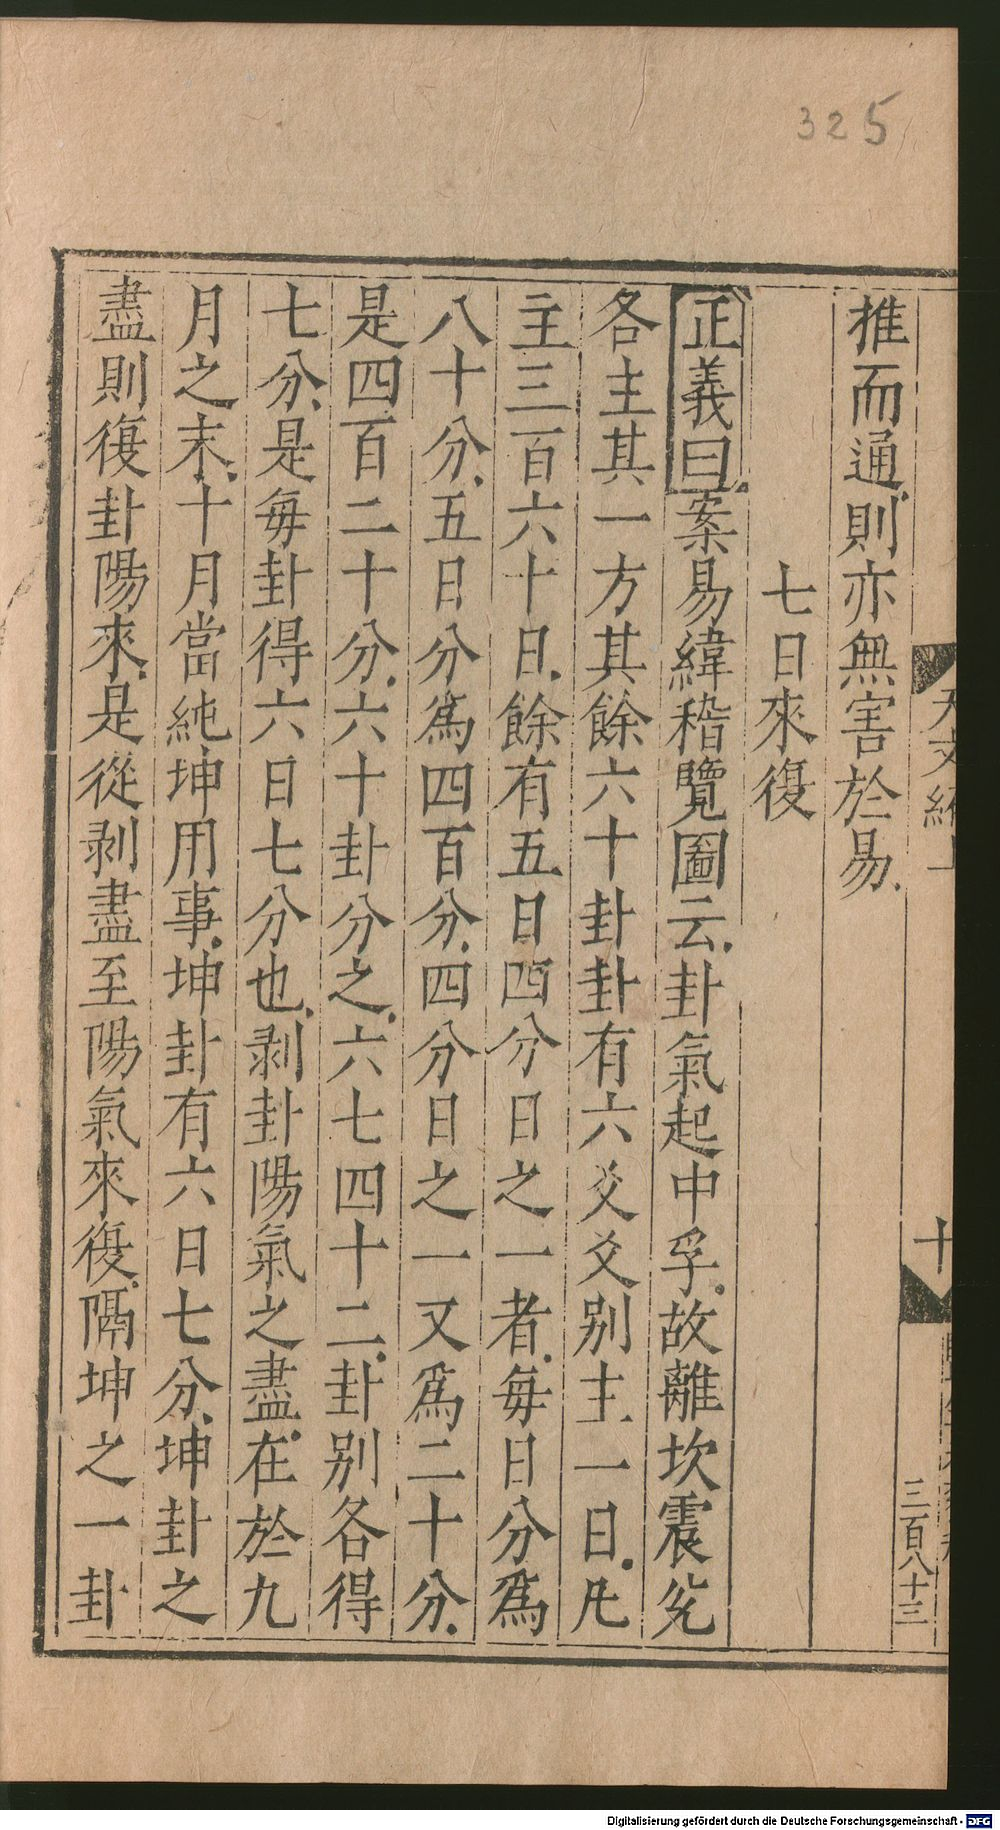 325
推而通則亦無害於易
七日來復
正義曰案易緯稽覽圖云卦氣起中孚故離坎震兌
各主其一方其餘六十卦卦有六爻爻别主一日凡
主三百六十日餘有五日四分日之一者每日分爲
八十分五日分爲四百分四分日之一又爲二十分
是四百二十分六十卦分之六七四十二卦别各得
七分是每卦得六日七分也剥卦陽氣之盡在於九
月之末十月當純坤用事坤卦有六日七分坤卦之
盡則復卦陽來是從剥盡至陽氣來復隔坤之一卦
天文經上
十
三百八十三
Digitalisierung gefördert durch die Deutsche Forschungsgemeinschaft - DFG